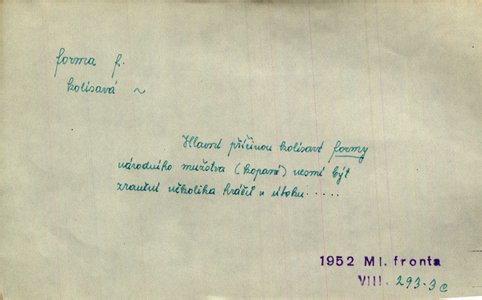 forma f.
kolísavá ~
Hlavní příčinou kolísavé formy
národního mužstva (kopané) nesmí být
zranění několika hráčů v útoku.....
1952 Ml. fronta
VIII. 293-3c